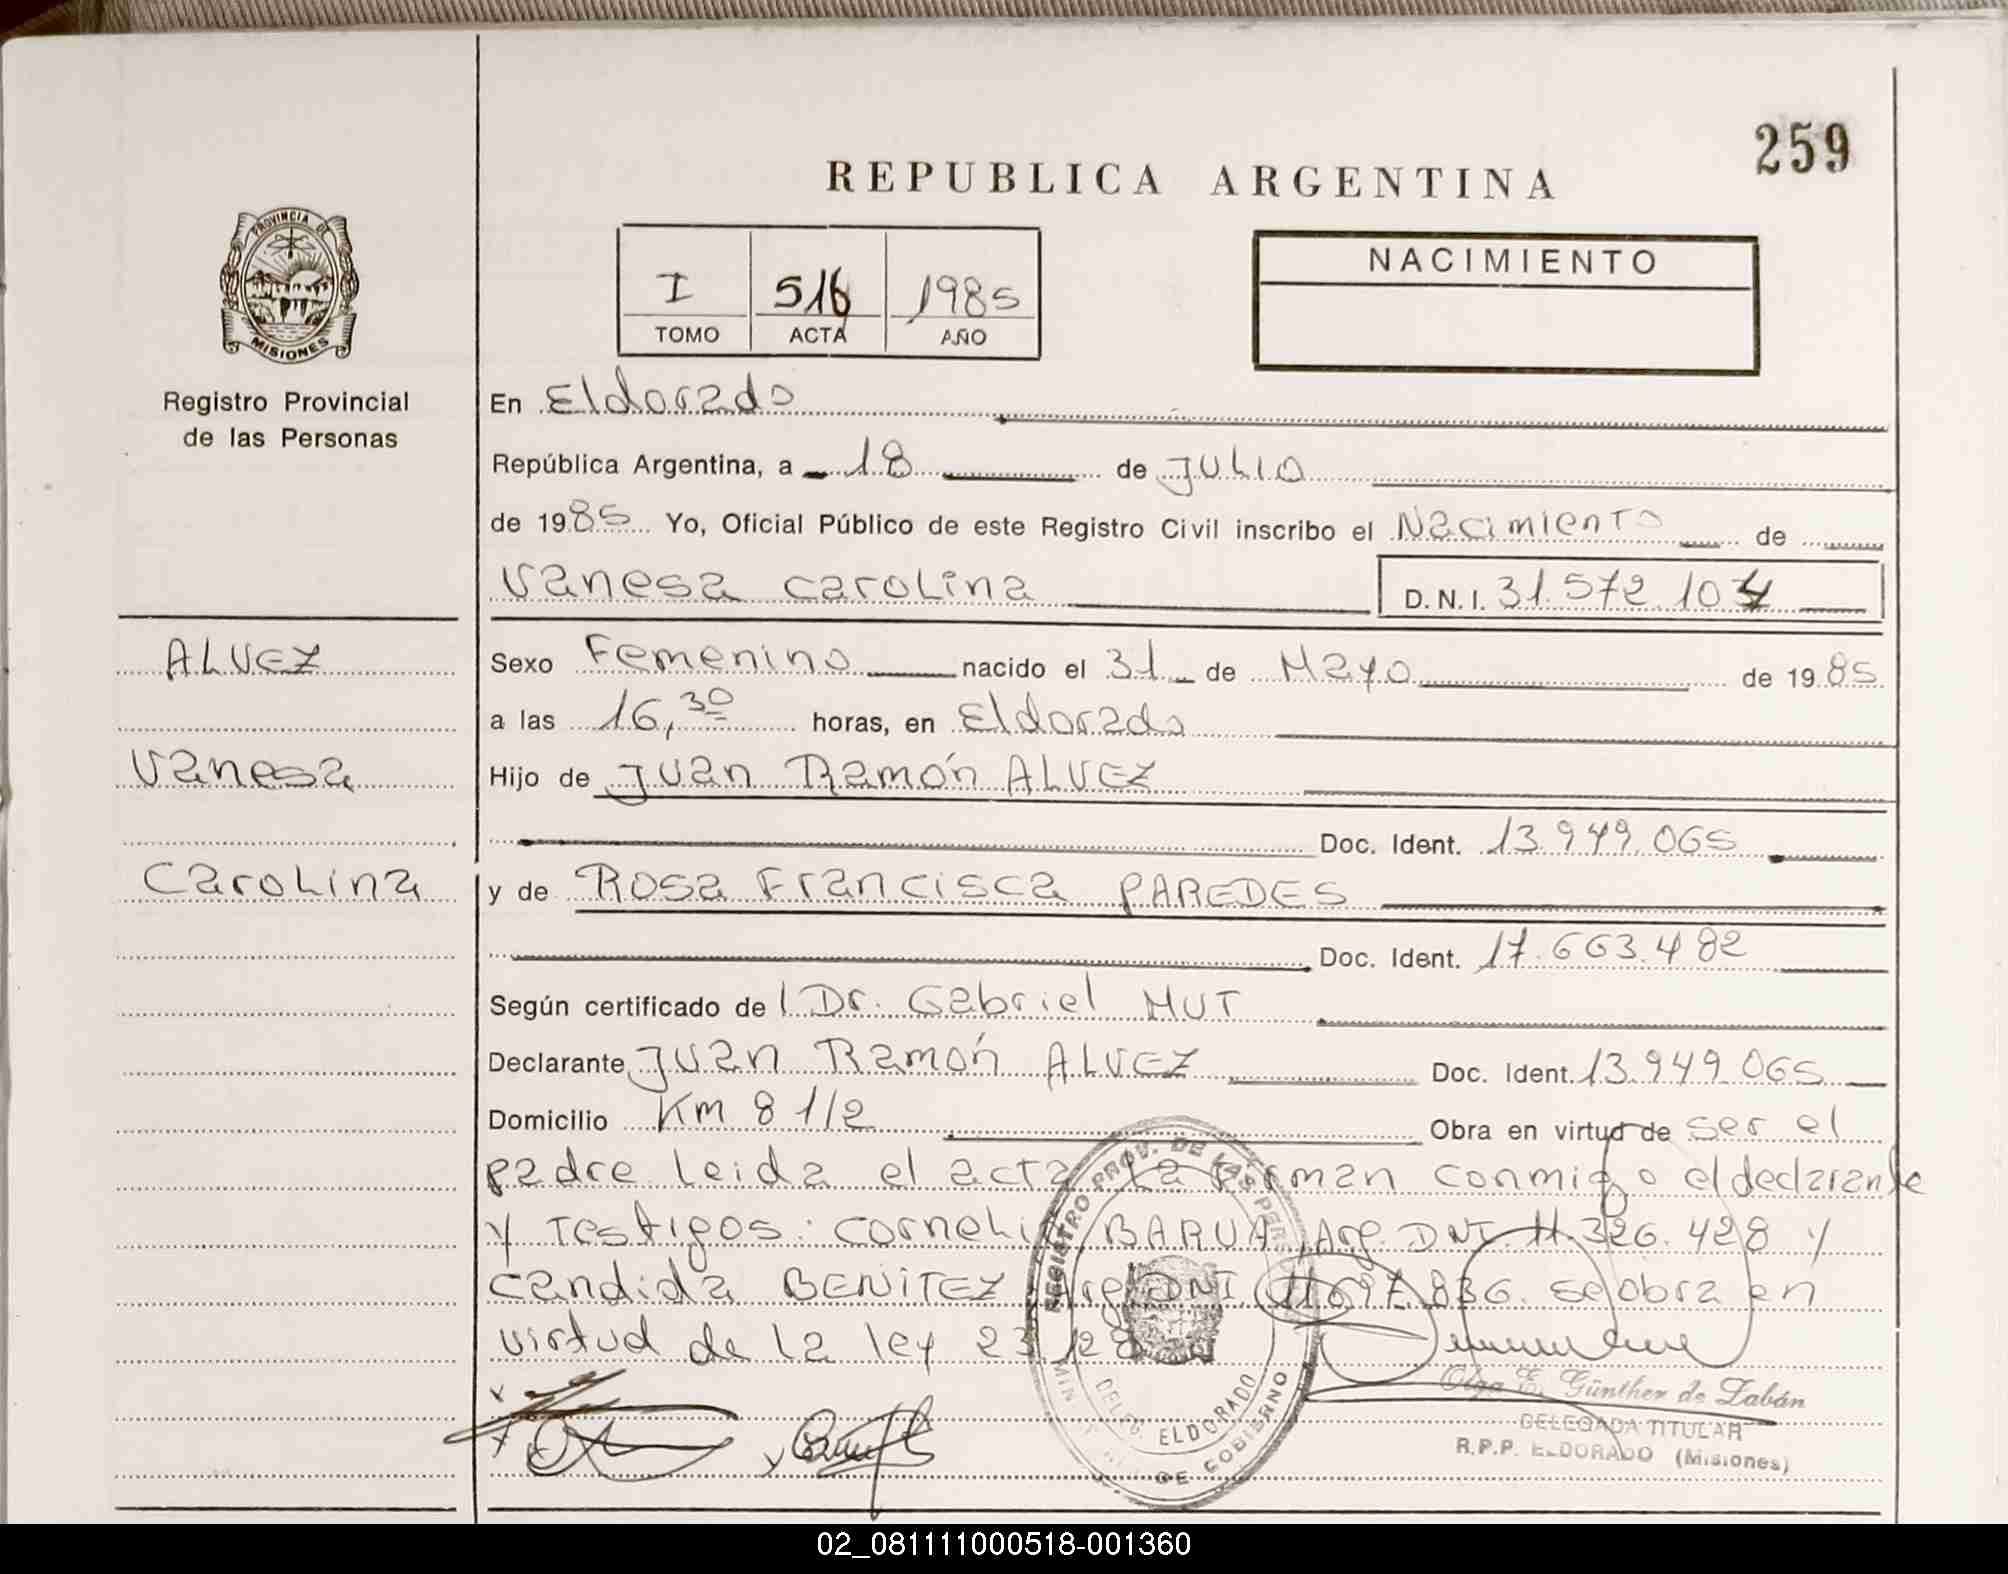 259
REPUBLICA ARGENTINA
PROVINCIA DE
MISIONES
Registro Provincial
de las Personas
I 516 1985
TOMO ACTA AÑO
NACIMIENTO
En Eldorado
República Argentina, a 18 de JULIO
de 1985 Yo, Oficial Público de este Registro Civil inscribo el Nacimiento de
Vanesa Carolina D.N.I. 31.572.104
ALVEZ
Sexo Femenino nacido el 31 de Mayo de 1985
a las 16,30 horas, en Eldorado
Vanesa
Hijo de Juan Ramón ALVEZ
Doc. Ident. 13.949.065
Carolina
y de Rosa Francisca PAREDES
Doc. Ident. 17.663.482
Según certificado del Dr. Gabriel MUT
Declarante Juan Ramón ALVEZ Doc. Ident. 13.949.065
Domicilio Km 8 1/2 Obra en virtud de ser el
padre leida el acta la firman conmigo el declarante
y testigos: Cornelia BARUA, Arg. DNI. 11.326.428 y
Candida BENITEZ Arg. DNI. 11.697.836. se obra en
virtud de la ley 23.128
REGISTRO PROV. DE LAS PERS
DELEG. ELDORADO
MIN DE GOBIERNO
Olga E. Günther de Zabán
DELEGADA TITULAR
R.P.P. ELDORADO (Misiones)
02_081111000518-001360